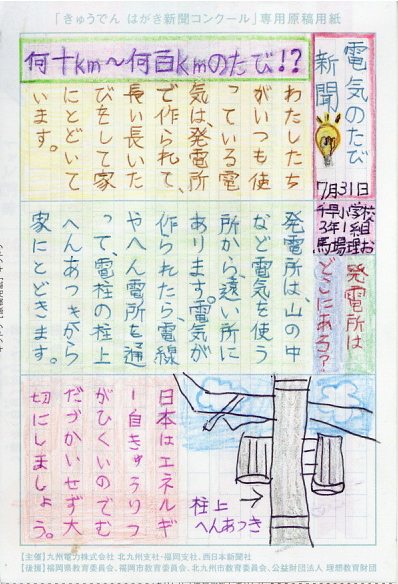 「きゅうでん はがき新聞コンクール」専用原稿用紙
電気のたび
新聞
7月31日
千早小学校
3年1組
馬場理お
何十km〜何百kmのたび!?
わたしたち
がいつも使
っている電
気は、発電所
で作られて、
長い長いた
びをして家
にとどいて
います。
発電所は
どこにあろ?
発電所は、山の中
など電気を使う
所から、遠い所に
あります。電気が
作られたら、電線
やへん電所を通
って、電柱の柱上
へんあつきから
家にとどきます。
日本はエネルギ
ー自きゅうりつ
がひくいのでむ
だづかいせず大
切にしましょう。
柱上
へんあつき
【主催】九州電力株式会社 北九州支社・福岡支社、西日本新聞社
【後援】福岡県教育委員会、福岡市教育委員会、北九州市教育委員会、公益財団法人 理想教育財団